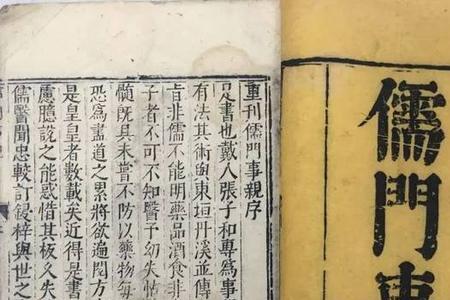 儒門事
重刊儒門事親序
是書也戴人張子和專為事
有法其術與東垣丹溪並傳
旨非儒不能明藥品酒食非
子者不可不知醫予幼失怙
既具未嘗不防以藥物每
恐為盡道之累將欲遍閱方
是皇皇者數載矣近得是書
慮臆說之能惑惜其板久失
儒醫聞忠較訂鋟梓與世之